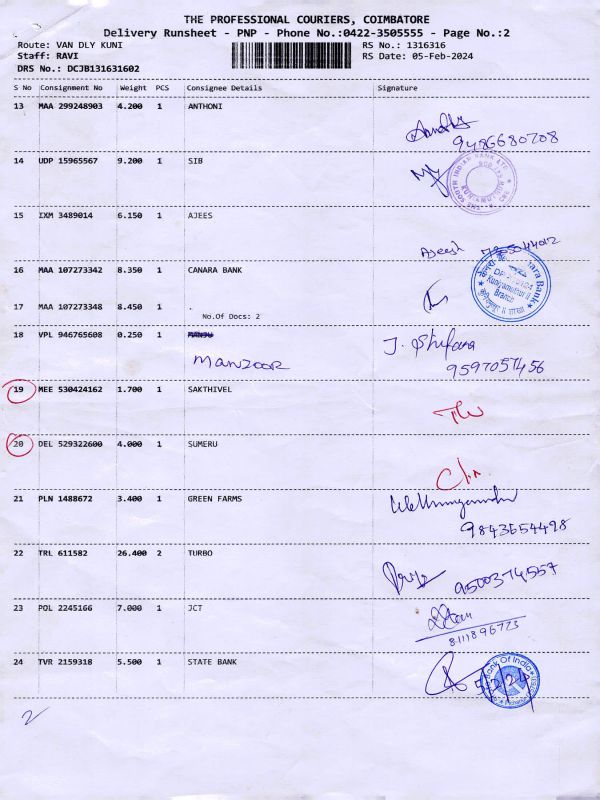 THE PROFESSIONAL COURIERS, COIMBATORE
Delivery Runsheet - PNP - Phone No.:0422-3505555 - Page No.:2
Route: VAN DLY KUNI RS No.: 1316316
Staff: RAVI RS Date: 05-Feb-2024
DRS No.: DCJB131631602
S No Consignment No Weight PCS Consignee Details Signature
13 MAA 299248903 4.200 1 ANTHONI
9486680708
14 UDP 15965567 9.200 1 SIB
15 IXM 3489014 6.150 1 AJEES
Ajeesh
16 MAA 107273342 8.350 1 CANARA BANK
17 MAA 107273348 8.450 1 .
No.Of Docs: 2
18 VPL 946765608 0.250 1 MANJU
MANZOOR
J. Shifana
9597057456
19 MEE 530424162 1.700 1 SAKTHIVEL
20 DEL 529322600 4.000 1 SUMERU
21 PLN 1488672 3.400 1 GREEN FARMS
9843654498
22 TRL 611582 26.400 2 TURBO
9500374557
23 POL 2245166 7.000 1 JCT
8111896723
24 TVR 2159318 5.500 1 STATE BANK
5/2/24
2